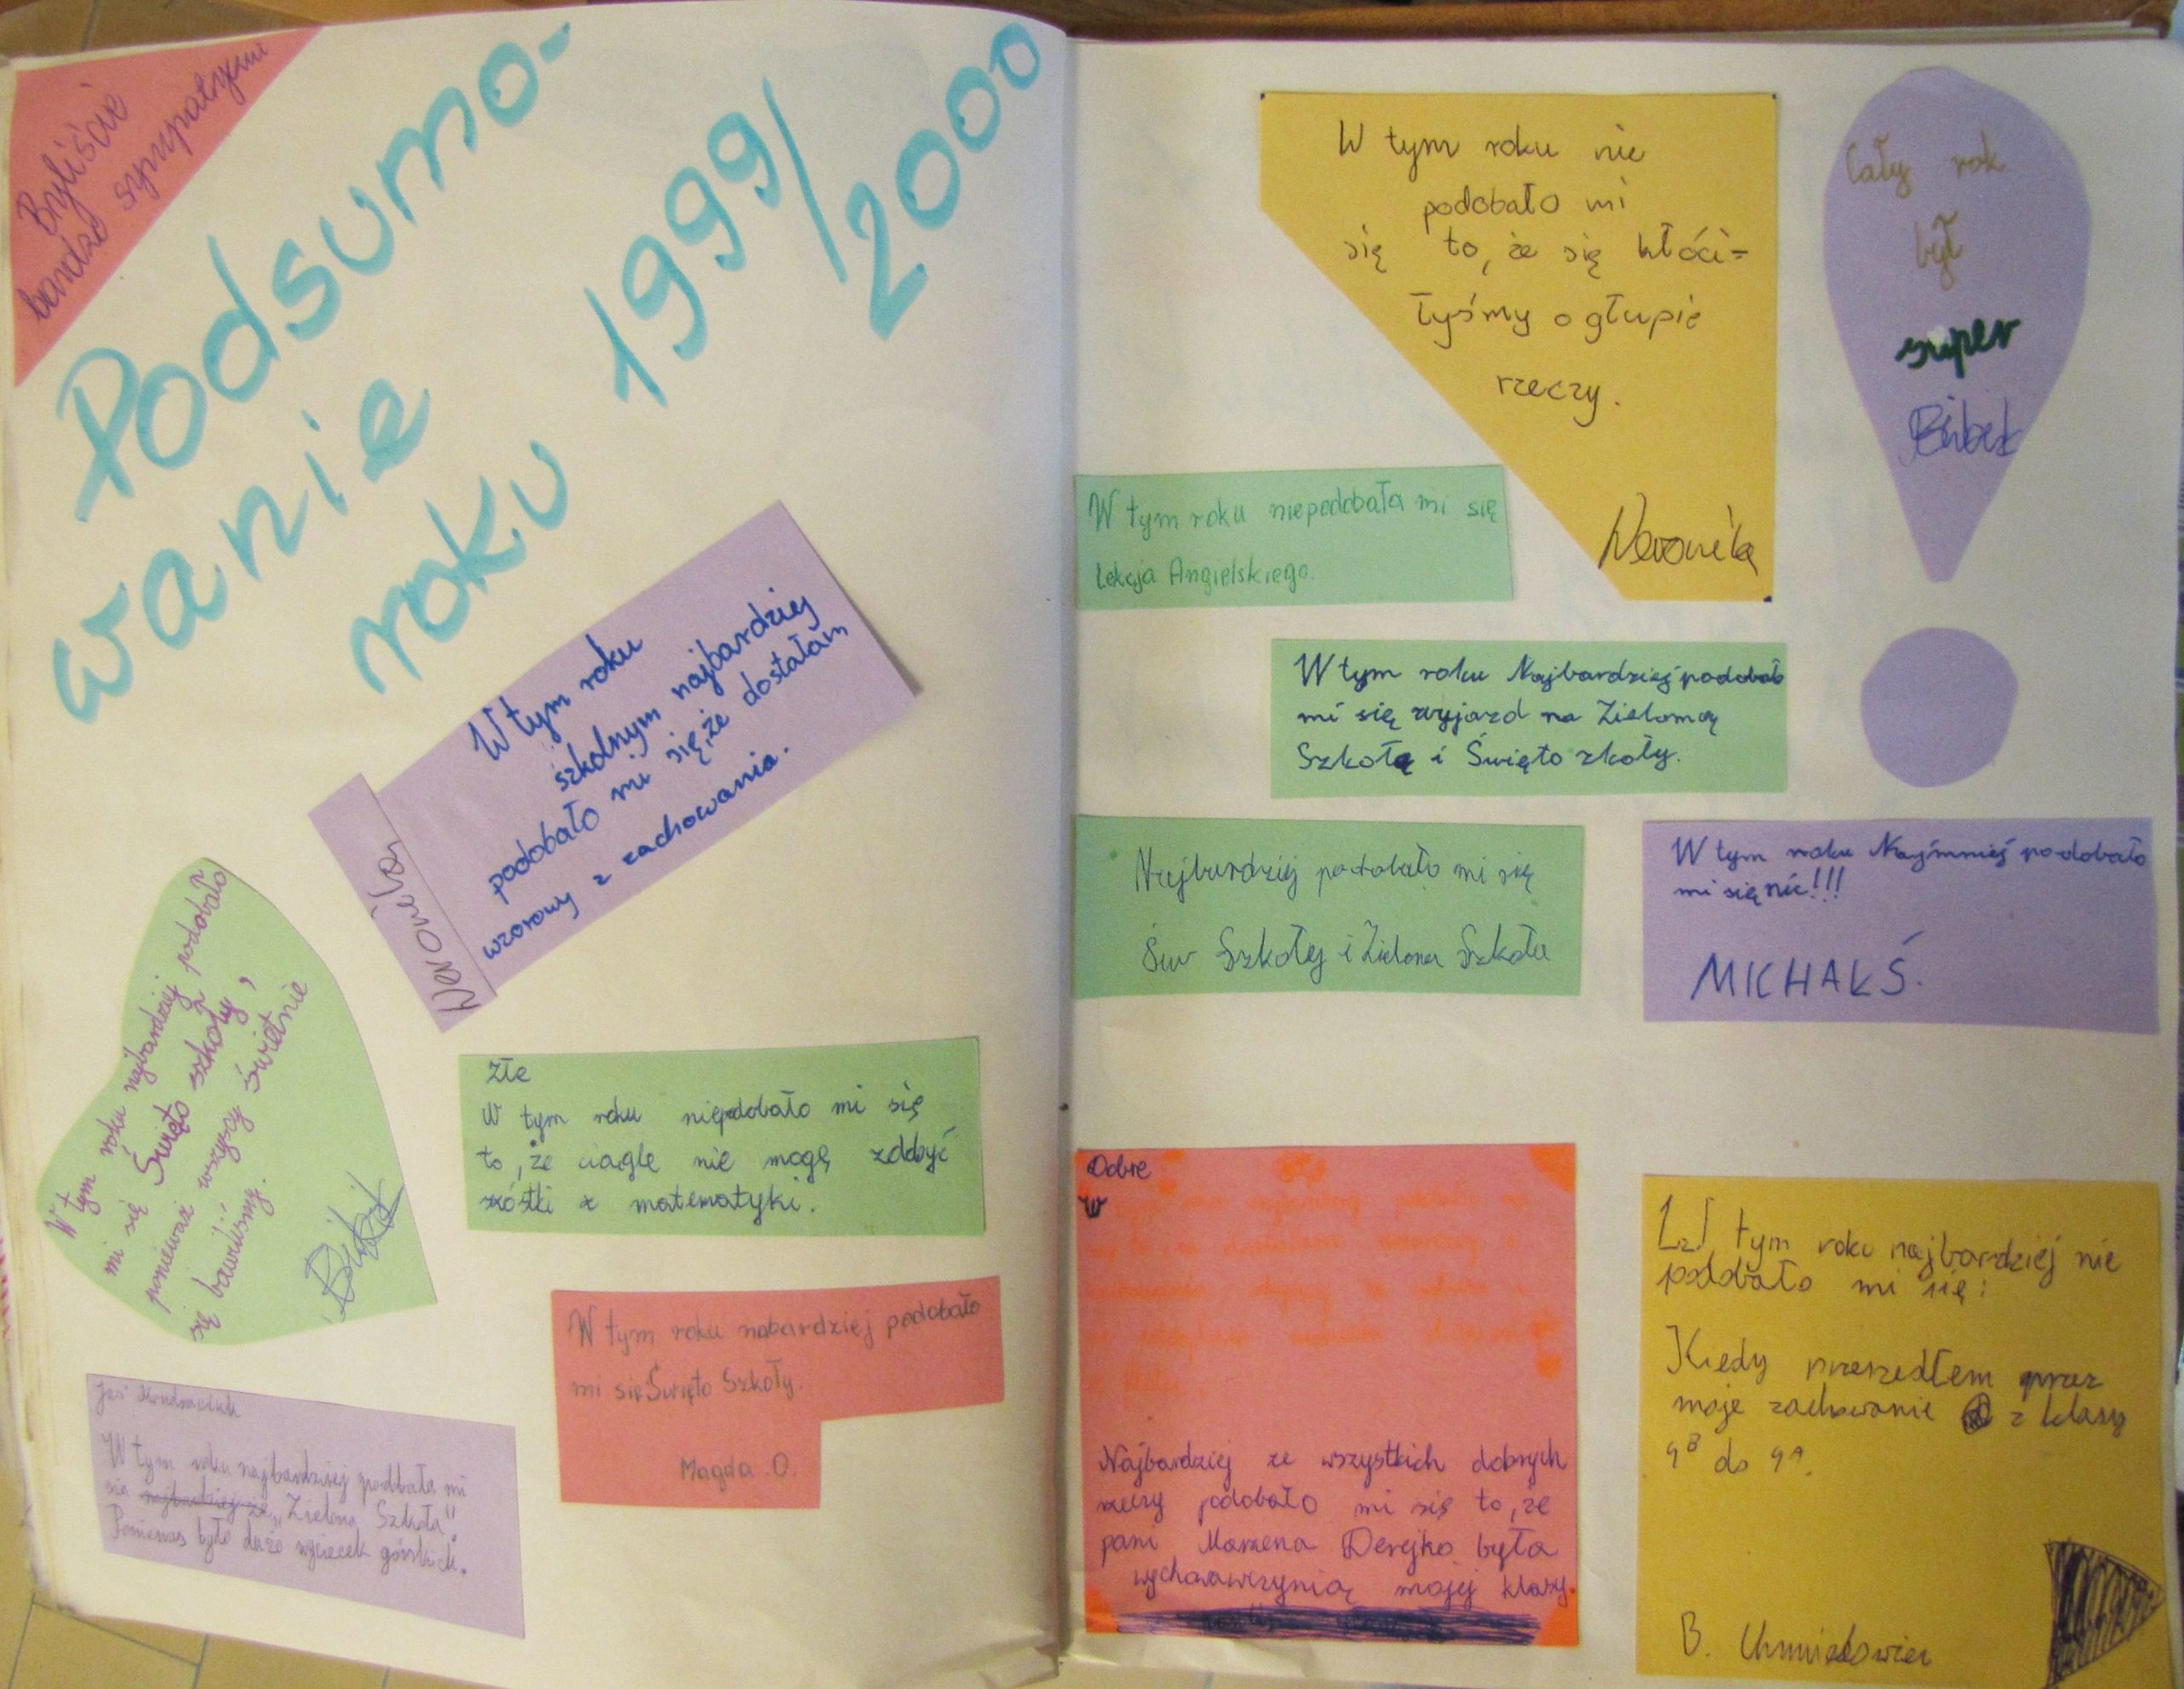 Byliście
bardzo sympatyczni
Podsumo-
wanie
roku 1999/2000
W tym roku
szkolnym najbardziej
podobało mi się, że dostałam
wzorowy z zachowania.
Weronika
W tym roku najbardziej podobało
mi się Święto szkoły,
ponieważ wszyscy świetnie
się bawiliśmy.
Źle
W tym roku niepodobało mi się
to, że ciągle nie mogę zdobyć
szóstki z matematyki.
W tym roku nabardziej podobało
mi się Święto Szkoły.
Magda .O.
Jaś
W tym roku najbardziej podobała mi
sia "Zielona Szkoła".
Poniewas było dużo wycieczek górskich.
W tym roku nie
podobało mi
się to, że się kłóci=
łyśmy o głupie
rzeczy.
Weronika
Cały rok
był
super
W tym roku niepodobała mi się
lekcja Angielskiego.
W tym roku Najbardziej podobało
mi się wyjazd na Zieloną
Szkołę i Święto zkoły.
Najbardziej podobało mi się
Św Szkołej i Zielona Szkoła
W tym roku Najmniej podobało
mi się nic!!!
MICHAŁ Ś.
Dobre
W
Najbardziej ze wszystkich dobrych
rzeczy podobało mi się to, że
pani Marzena Derejko była
wychowawczynią mojej klasy.
W tym roku najbardziej nie
podobało mi się:
Kiedy przeszedłem przez
moje zachowanie z klasy
4B do 4A.
B.